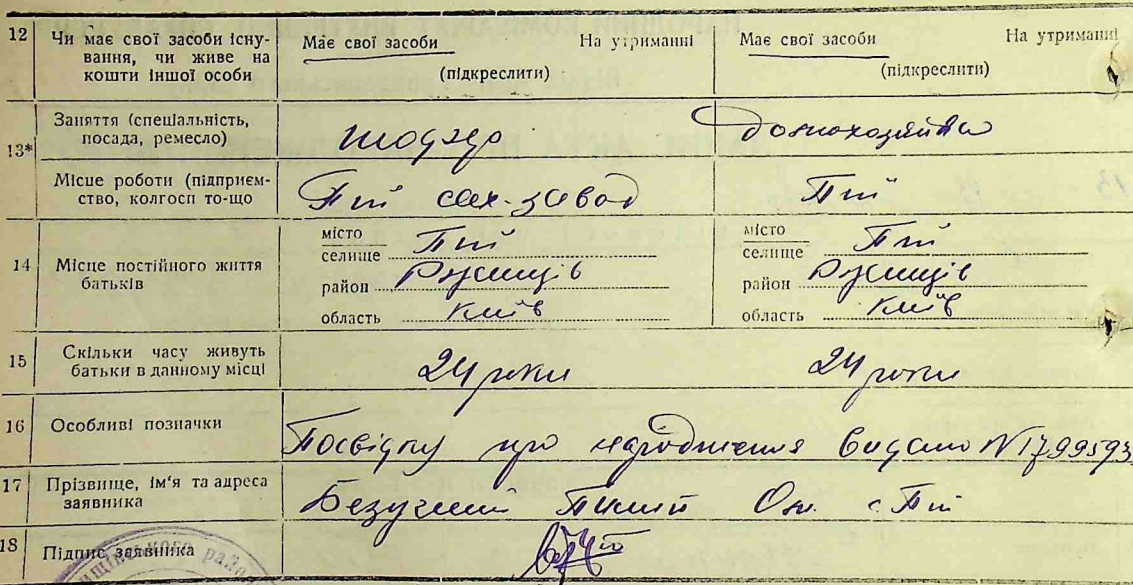 12 Чи має свої засоби існування, чи живе на кошти іншої особи
Має свої засоби На утриманні
(підкреслити)
Має свої засоби На утриманні
(підкреслити)
13* Заняття (спеціальність, посада, ремесло)
домохозяйка
Місце роботи (підприємство, колгосп то-що
Пії сах-завод
Пії
14 Місце постійного життя батьків
місто
селище Пії
район Ржищів
область Київ
місто
селище Пії
район Ржищів
область Київ
15 Скільки часу живуть батьки в данному місці
24 роки
24 роки
16 Особливі позначки
Посвідку про народження видано N1799593
17 Прізвище, ім'я та адреса заявника
с. Пії
18 Підпис заявника